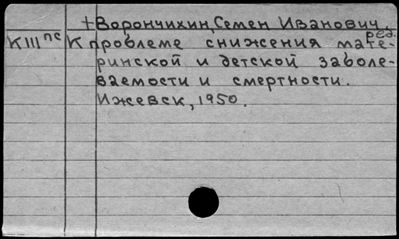 +Ворончихин, Семен Иванович, ред.
КIII пс К проблеме снижения мате-
ринской и детской заболе-
ваемости и смертности.
Ижевск, 1950.